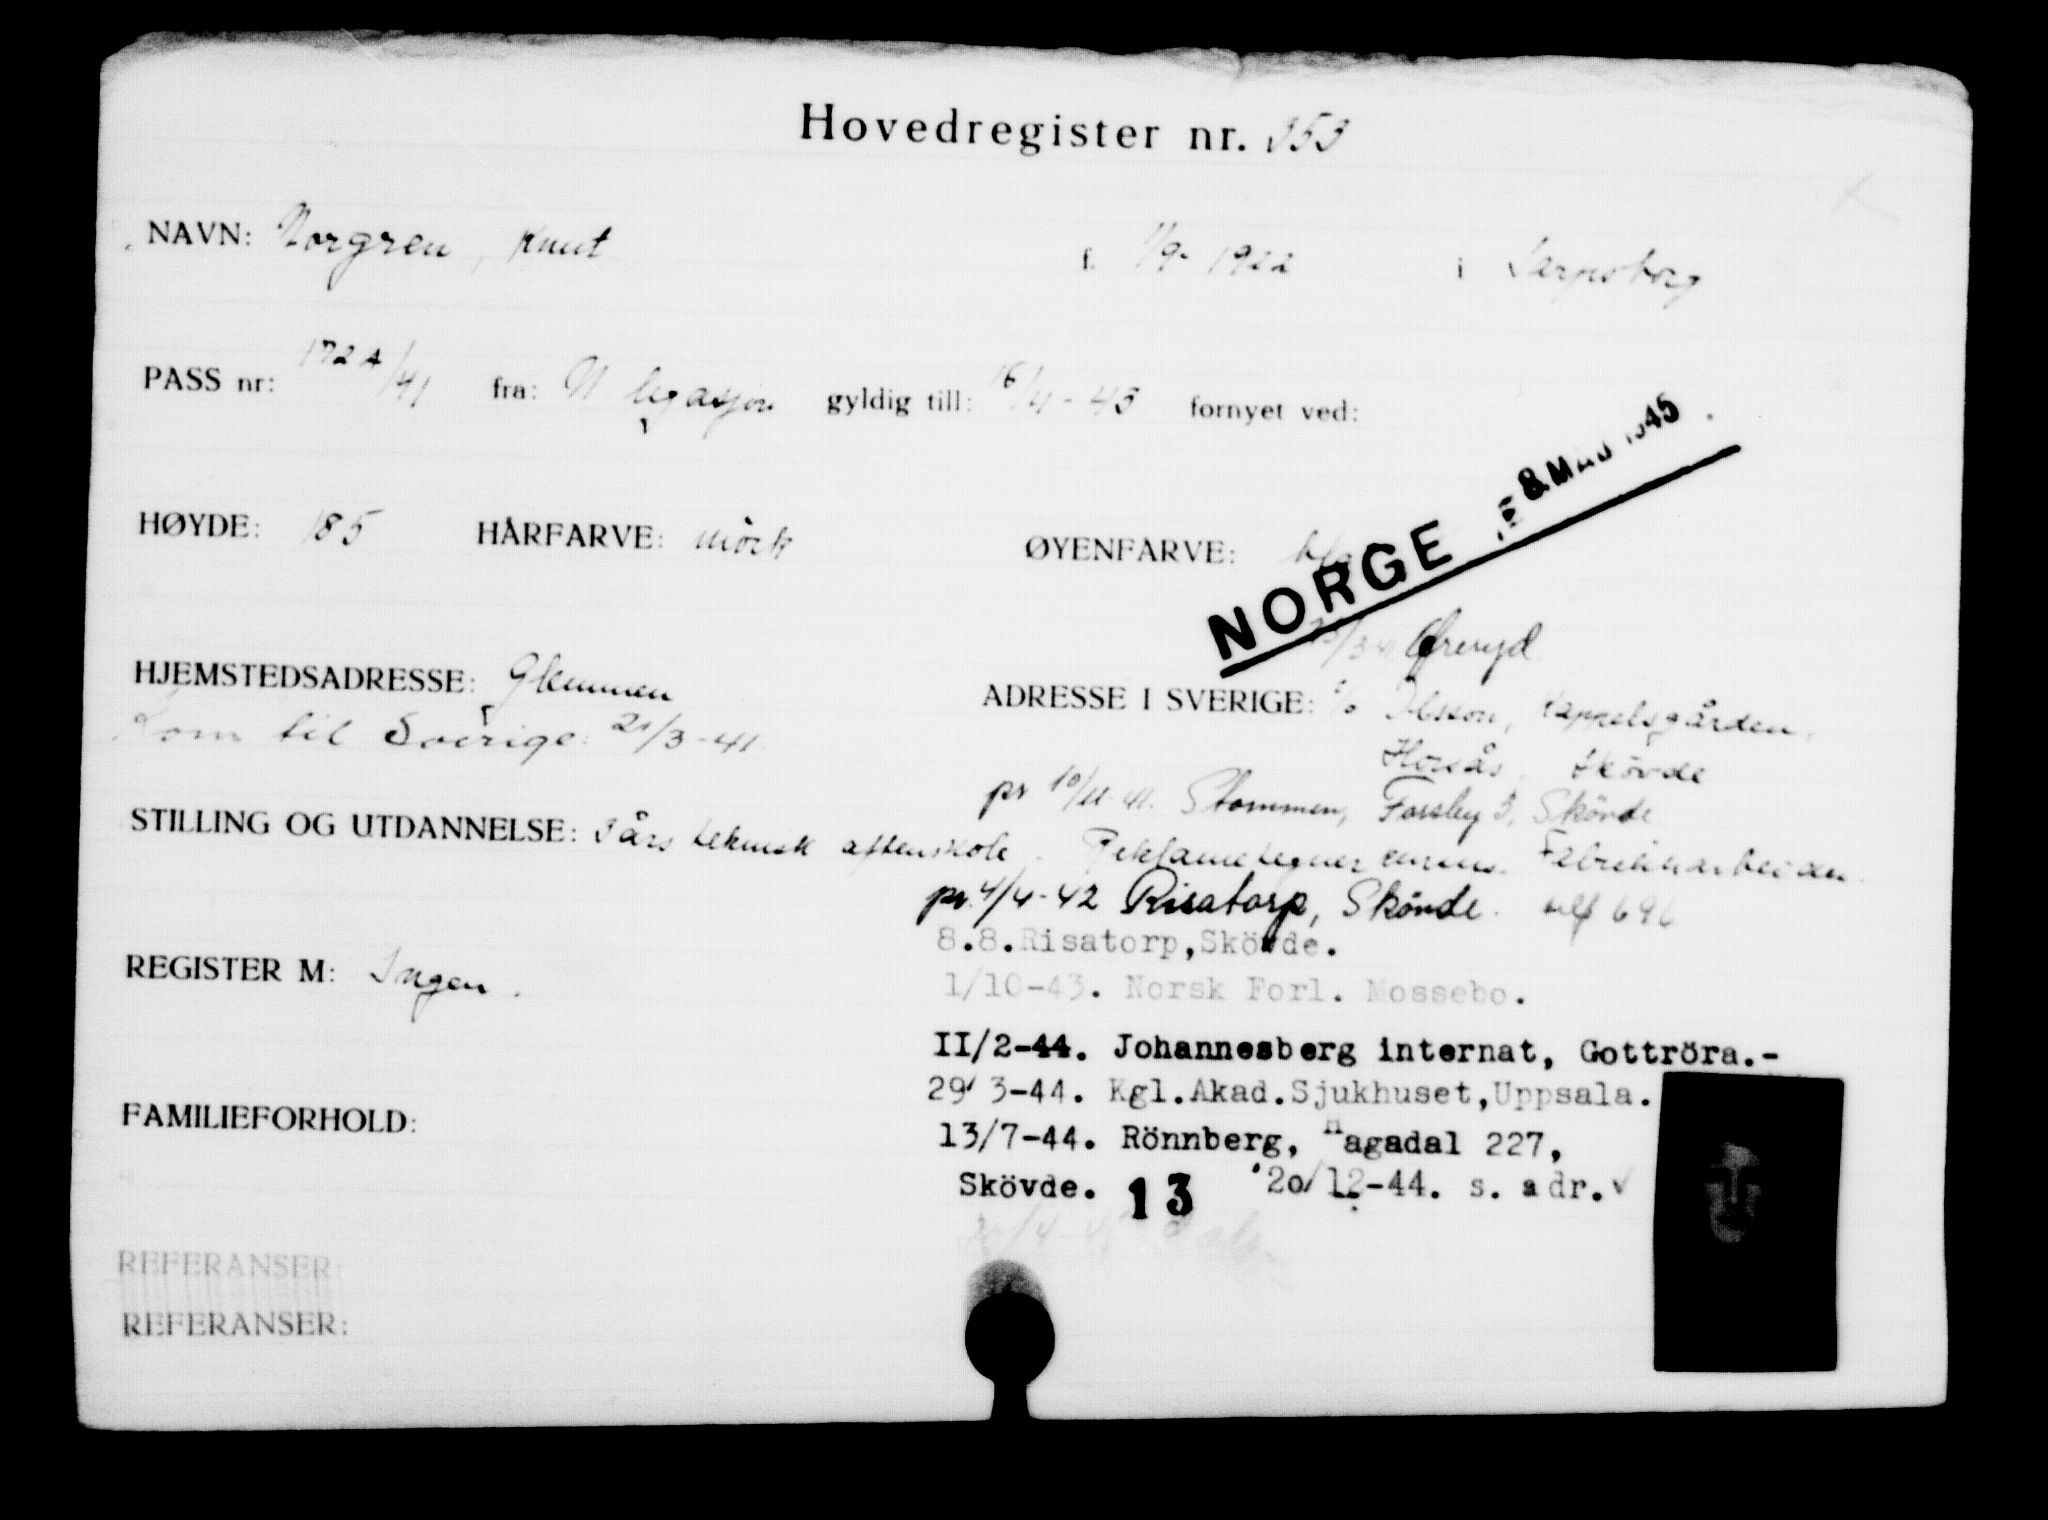 Hovedregister nr. 353
NAVN: Norgren, Knut f. 1/9-1922 i Sarpsborg
PASS nr: 172 A/41 fra: N legasjon gyldig till: 16/4-43 fornyet ved:
8. MAI 1945
NORGE
HØYDE: 185 HÅRFARVE: mörk ØYENFARVE: blå
Öreryd
HJEMSTEDSADRESSE: Glemmen ADRESSE I SVERIGE: c/o Olsson, Kappelsgården,
Kom til Sverige: 21/3-41 Horsås, Skövde
pr 10/11-41. Stommen, Forsby 3, Skövde
STILLING OG UTDANNELSE: 3 års teknisk aftenskole. Reklametegner cursus. Fabrikkarbeider.
pr. 4/4-42 Risatorp, Skövde. tlf 696
8.8.Risatorp,Skövde.
REGISTER M: Ingen.
1/10-43. Norsk Forl. Mossebo.
II/2-44. Johannesberg internat, Gottröra.-
29/3-44. Kgl.Akad.Sjukhuset,Uppsala.
FAMILIEFORHOLD:
13/7-44. Rönnberg, Hagadal 227,
Skövde. 13 20/12-44. s. adr.
REFERANSER:
REFERANSER: